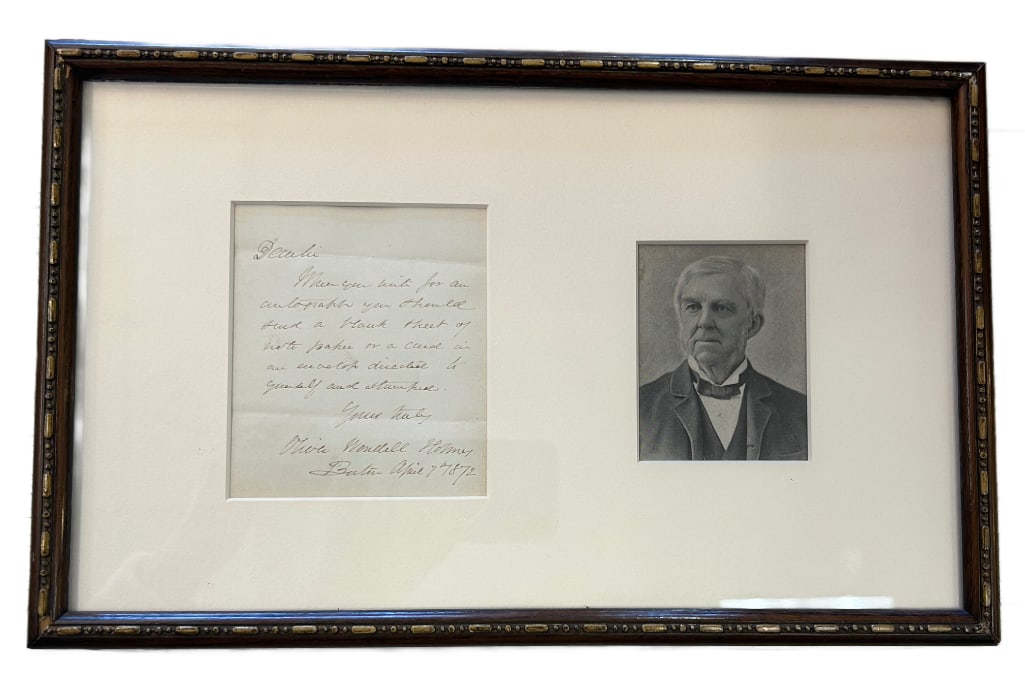 Dear Sir
When you write for an
autograph you should
send a blank sheet of
note paper or a card in
an envelope directed to
yourself and stamped.
Yours truly
Oliver Wendell Holmes
Boston April 7th 1872